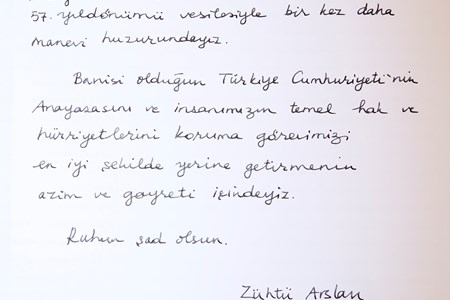 57. yıldönümü vesilesiyle bir kez daha
manevi huzurundayız.
Banisi olduğun Türkiye Cumhuriyeti'nin
Anayasasını ve insanımızın temel hak ve
hürriyetlerini koruma görevimizi
en iyi şekilde yerine getirmenin
azim ve gayreti içindeyiz.
Ruhun şad olsun.
Zühtü Arslan